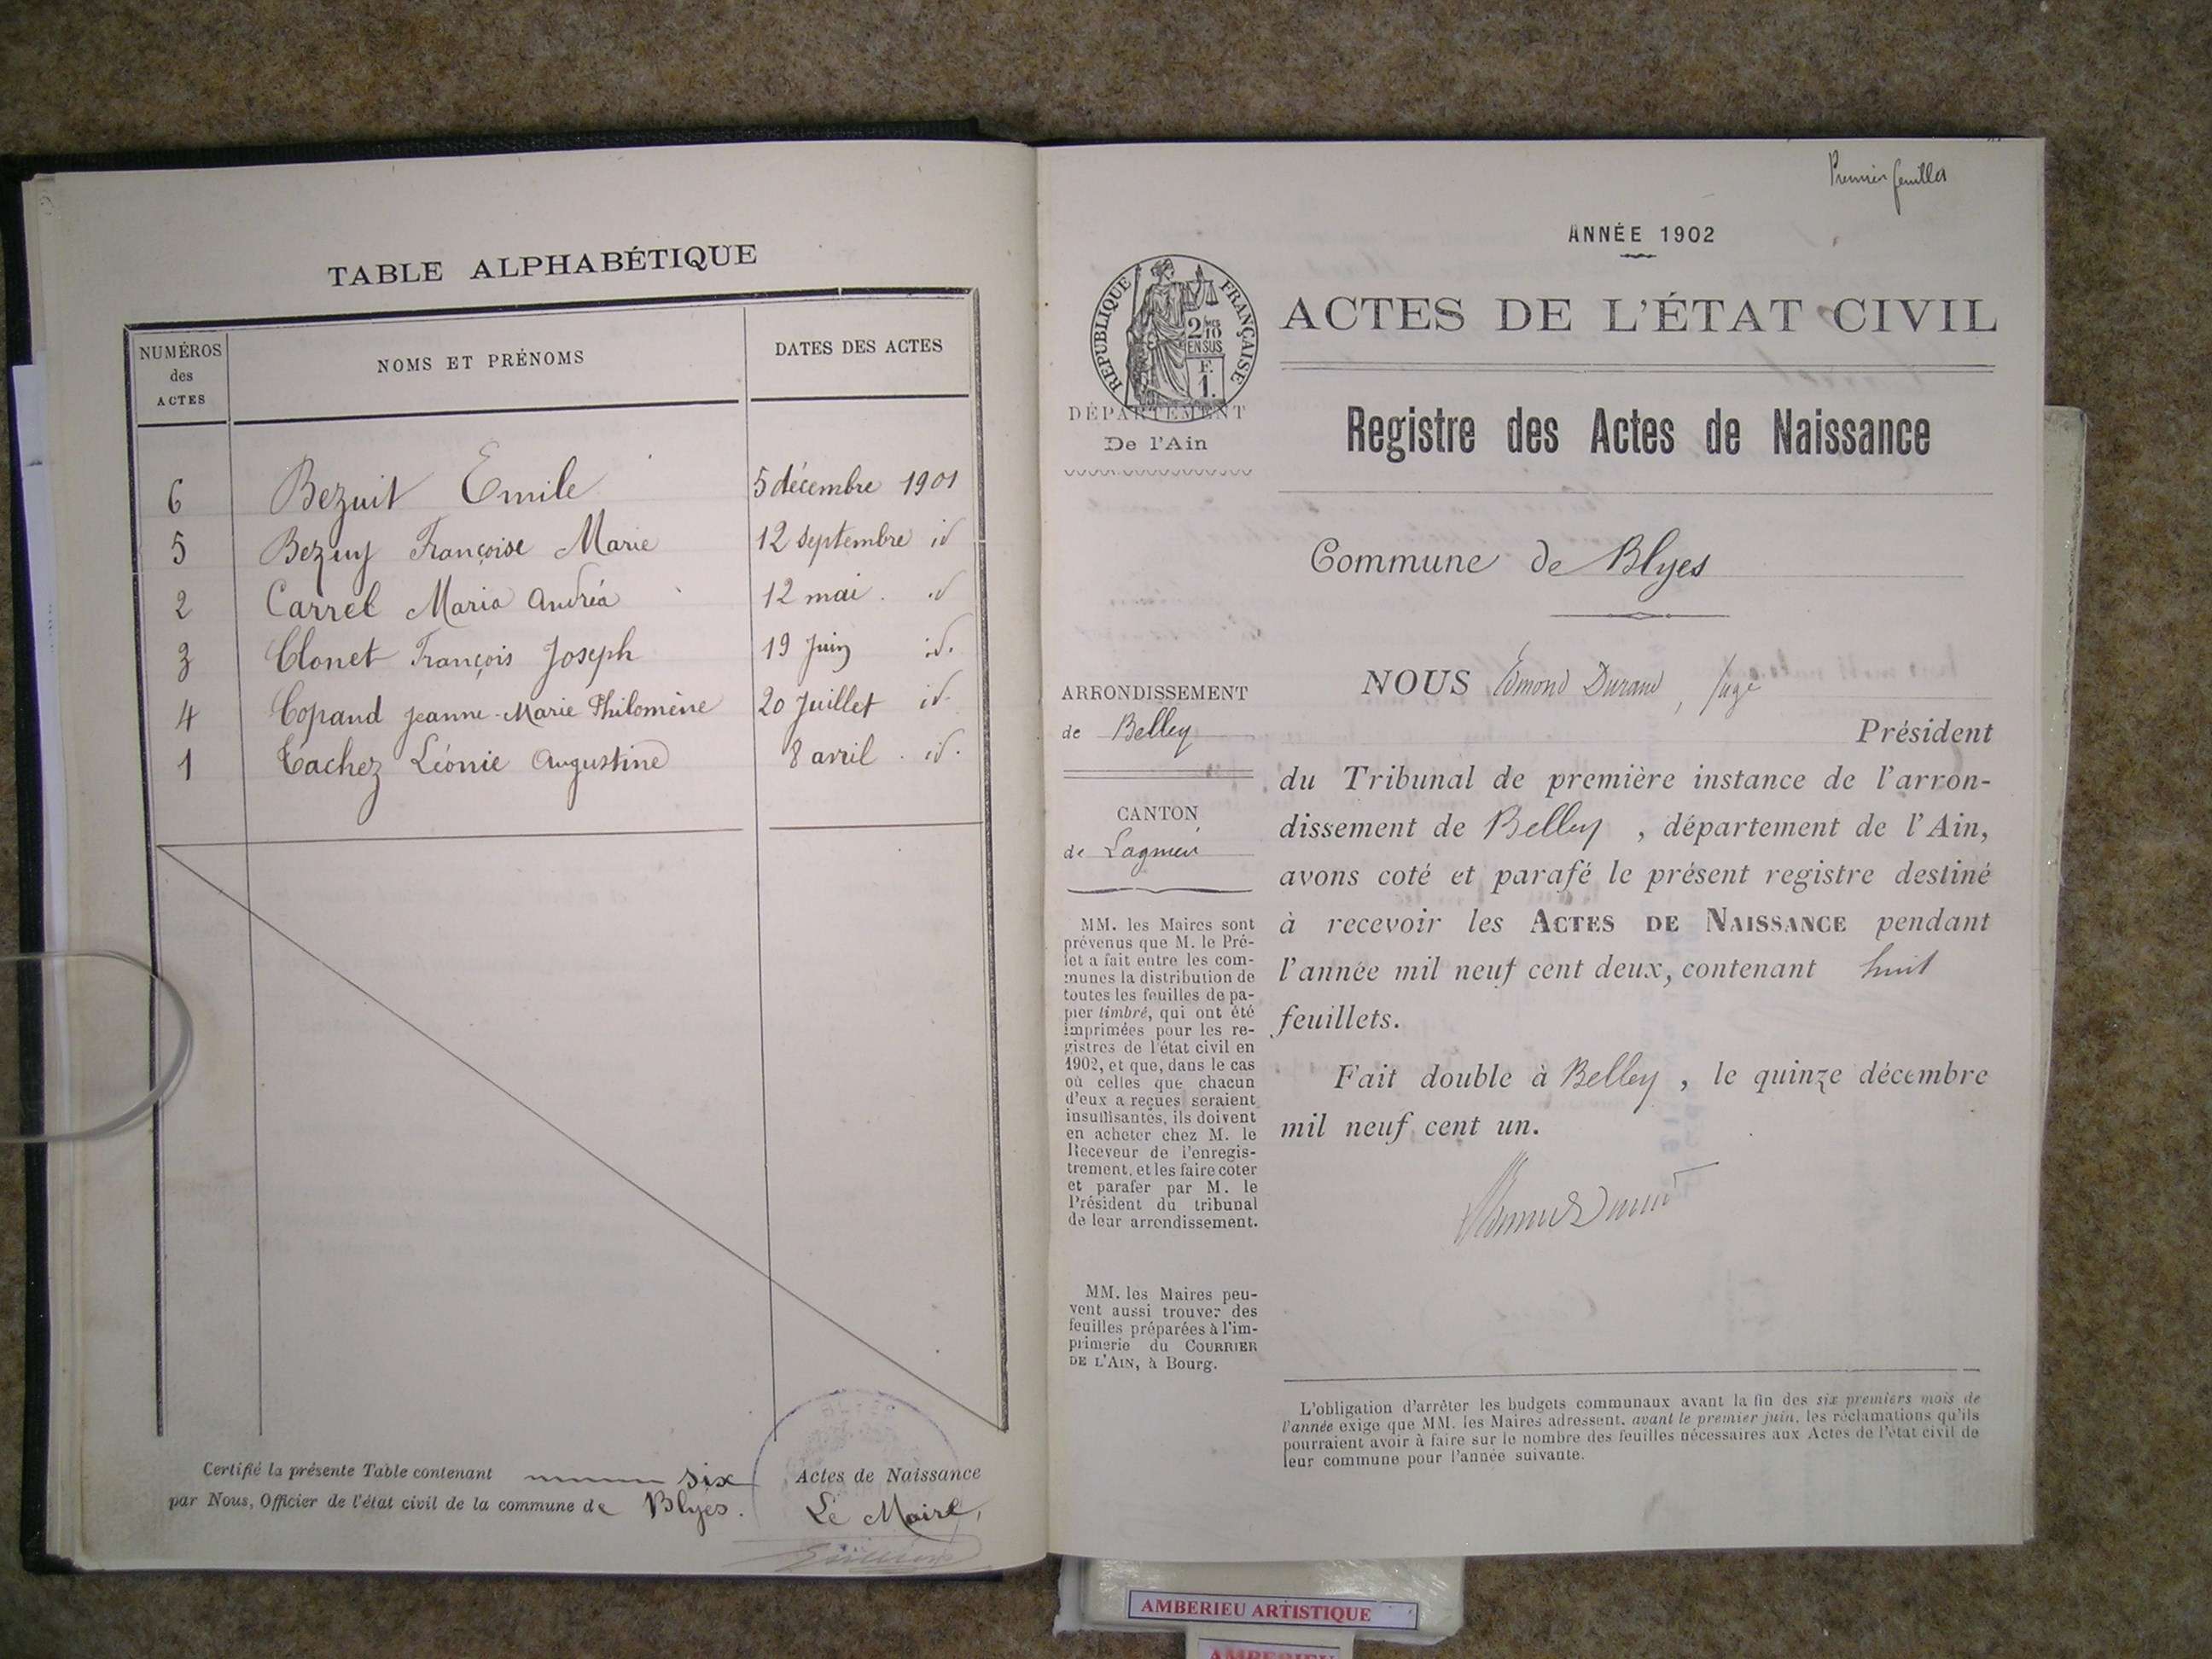 TABLE ALPHABÉTIQUE
NUMÉROS
des
ACTES
NOMS ET PRÉNOMS
DATES DES ACTES
6 Bezuit Emile 5 décembre 1901
5 Bezuy Françoise Marie 12 septembre id
2 Carrel Maria Andréa 12 mai. id
3 Clonet François Joseph 19 Juin id.
4 Copand Jeanne-Marie Philomène 20 Juillet id.
1 Tachez Léonie Augustine 8 avril. id.
Certifié la présente Table contenant six Actes de Naissance
par Nous, Officier de l'état civil de la commune de Blyes.
Le Maire,
Premier feuillet
ANNÉE 1902
RÉPUBLIQUE FRANÇAISE
2/10 mes
EN SUS
F.
1.
ACTES DE L'ÉTAT CIVIL
DÉPARTEMENT
De l'Ain
Registre des Actes de Naissance
Commune de Blyes
ARRONDISSEMENT
de Belley
CANTON
de Lagnieu
MM. les Maires sont
prévenus que M. le Pré-
fet a fait entre les com-
munes la distribution de
toutes les feuilles de pa-
pier timbré, qui ont été
imprimées pour les re-
gistres de l'état civil en
1902, et que, dans le cas
où celles que chacun
d'eux a reçues seraient
insuffisantes, ils doivent
en acheter chez M. le
Receveur de l'enregis-
trement, et les faire coter
et parafer par M. le
Président du tribunal
de leur arrondissement.
MM. les Maires peu-
vent aussi trouver des
feuilles préparées à l'im-
primerie du COURRIER
DE L'AIN, à Bourg.
NOUS Edmond Durand, Juge
Président
du Tribunal de première instance de l'arron-
dissement de Belley, département de l'Ain,
avons coté et parafé le présent registre destiné
à recevoir les ACTES DE NAISSANCE pendant
l'année mil neuf cent deux, contenant huit
feuillets.
Fait double à Belley, le quinze décembre
mil neuf cent un.
L'obligation d'arrêter les budgets communaux avant la fin des six premiers mois de
l'année exige que MM. les Maires adressent, avant le premier juin, les réclamations qu'ils
pourraient avoir à faire sur le nombre des feuilles nécessaires aux Actes de l'état civil de
leur commune pour l'année suivante.
AMBERIEU ARTISTIQUE
AMBERIEU